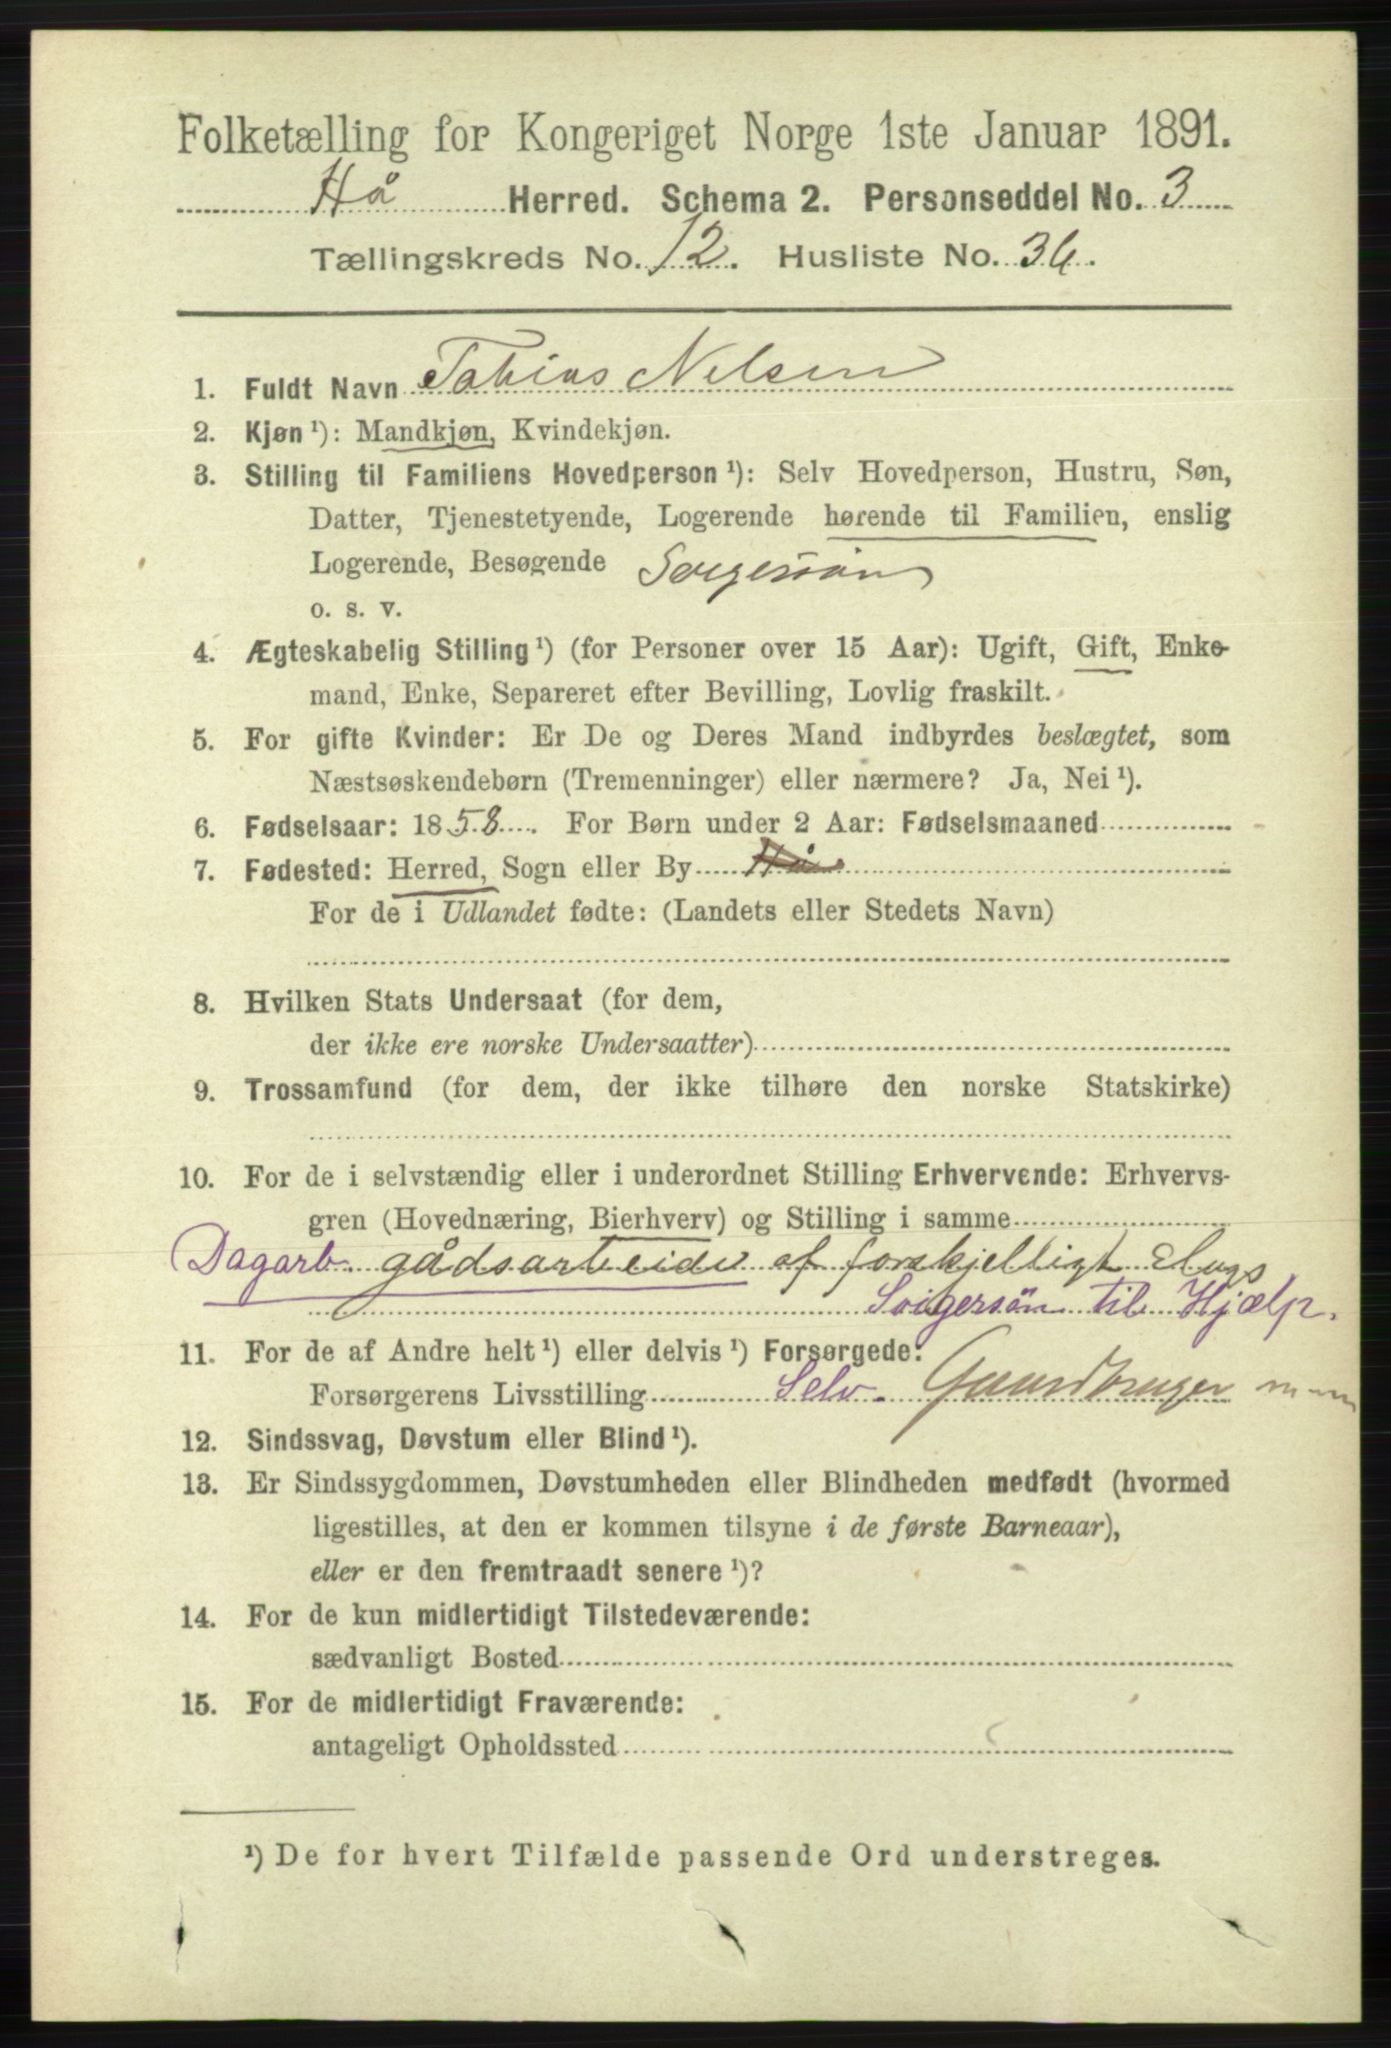 Folketælling for Kongeriget Norge 1ste Januar 1891.
Hå Herred. Schema 2. Personseddel No. 3
Tællingskreds No. 12. Husliste No. 36.
1. Fuldt Navn Tobias Nelsen
2. Kjøn ¹): Mandkjøn, Kvindekjøn.
3. Stilling til Familiens Hovedperson ¹): Selv Hovedperson, Hustru, Søn,
Datter, Tjenestetyende, Logerende hørende til Familien, enslig
Logerende, Besøgende Svigersøn
o. s. v.
4. Ægteskabelig Stilling ¹) (for Personer over 15 Aar): Ugift, Gift, Enke-
mand, Enke, Separeret efter Bevilling, Lovlig fraskilt.
5. For gifte Kvinder: Er De og Deres Mand indbyrdes beslægtet, som
Næstsøskendebørn (Tremenninger) eller nærmere? Ja, Nei ¹).
6. Fødselsaar: 1858. For Børn under 2 Aar: Fødselsmaaned
7. Fødested: Herred, Sogn eller By Hå
For de i Udlandet fødte: (Landets eller Stedets Navn)
8. Hvilken Stats Undersaat (for dem,
der ikke ere norske Undersaatter)
9. Trossamfund (for dem, der ikke tilhøre den norske Statskirke)
10. For de i selvstændig eller i underordnet Stilling Erhvervende: Erhvervs-
gren (Hovednæring, Bierhverv) og Stilling i samme
Dagarb. gådsarbeider af forskjelligt Slags
Svigersön til Hjælp.
11. For de af Andre helt ¹) eller delvis ¹) Forsørgede:
Forsørgerens Livsstilling Selv. Gaardbruger
12. Sindssvag, Døvstum eller Blind ¹).
13. Er Sindssygdommen, Døvstumheden eller Blindheden medfødt (hvormed
ligestilles, at den er kommen tilsyne i de første Barneaar),
eller er den fremtraadt senere ¹)?
14. For de kun midlertidigt Tilstedeværende:
sædvanligt Bosted
15. For de midlertidigt Fraværende:
antageligt Opholdssted
¹) De for hvert Tilfælde passende Ord understreges.